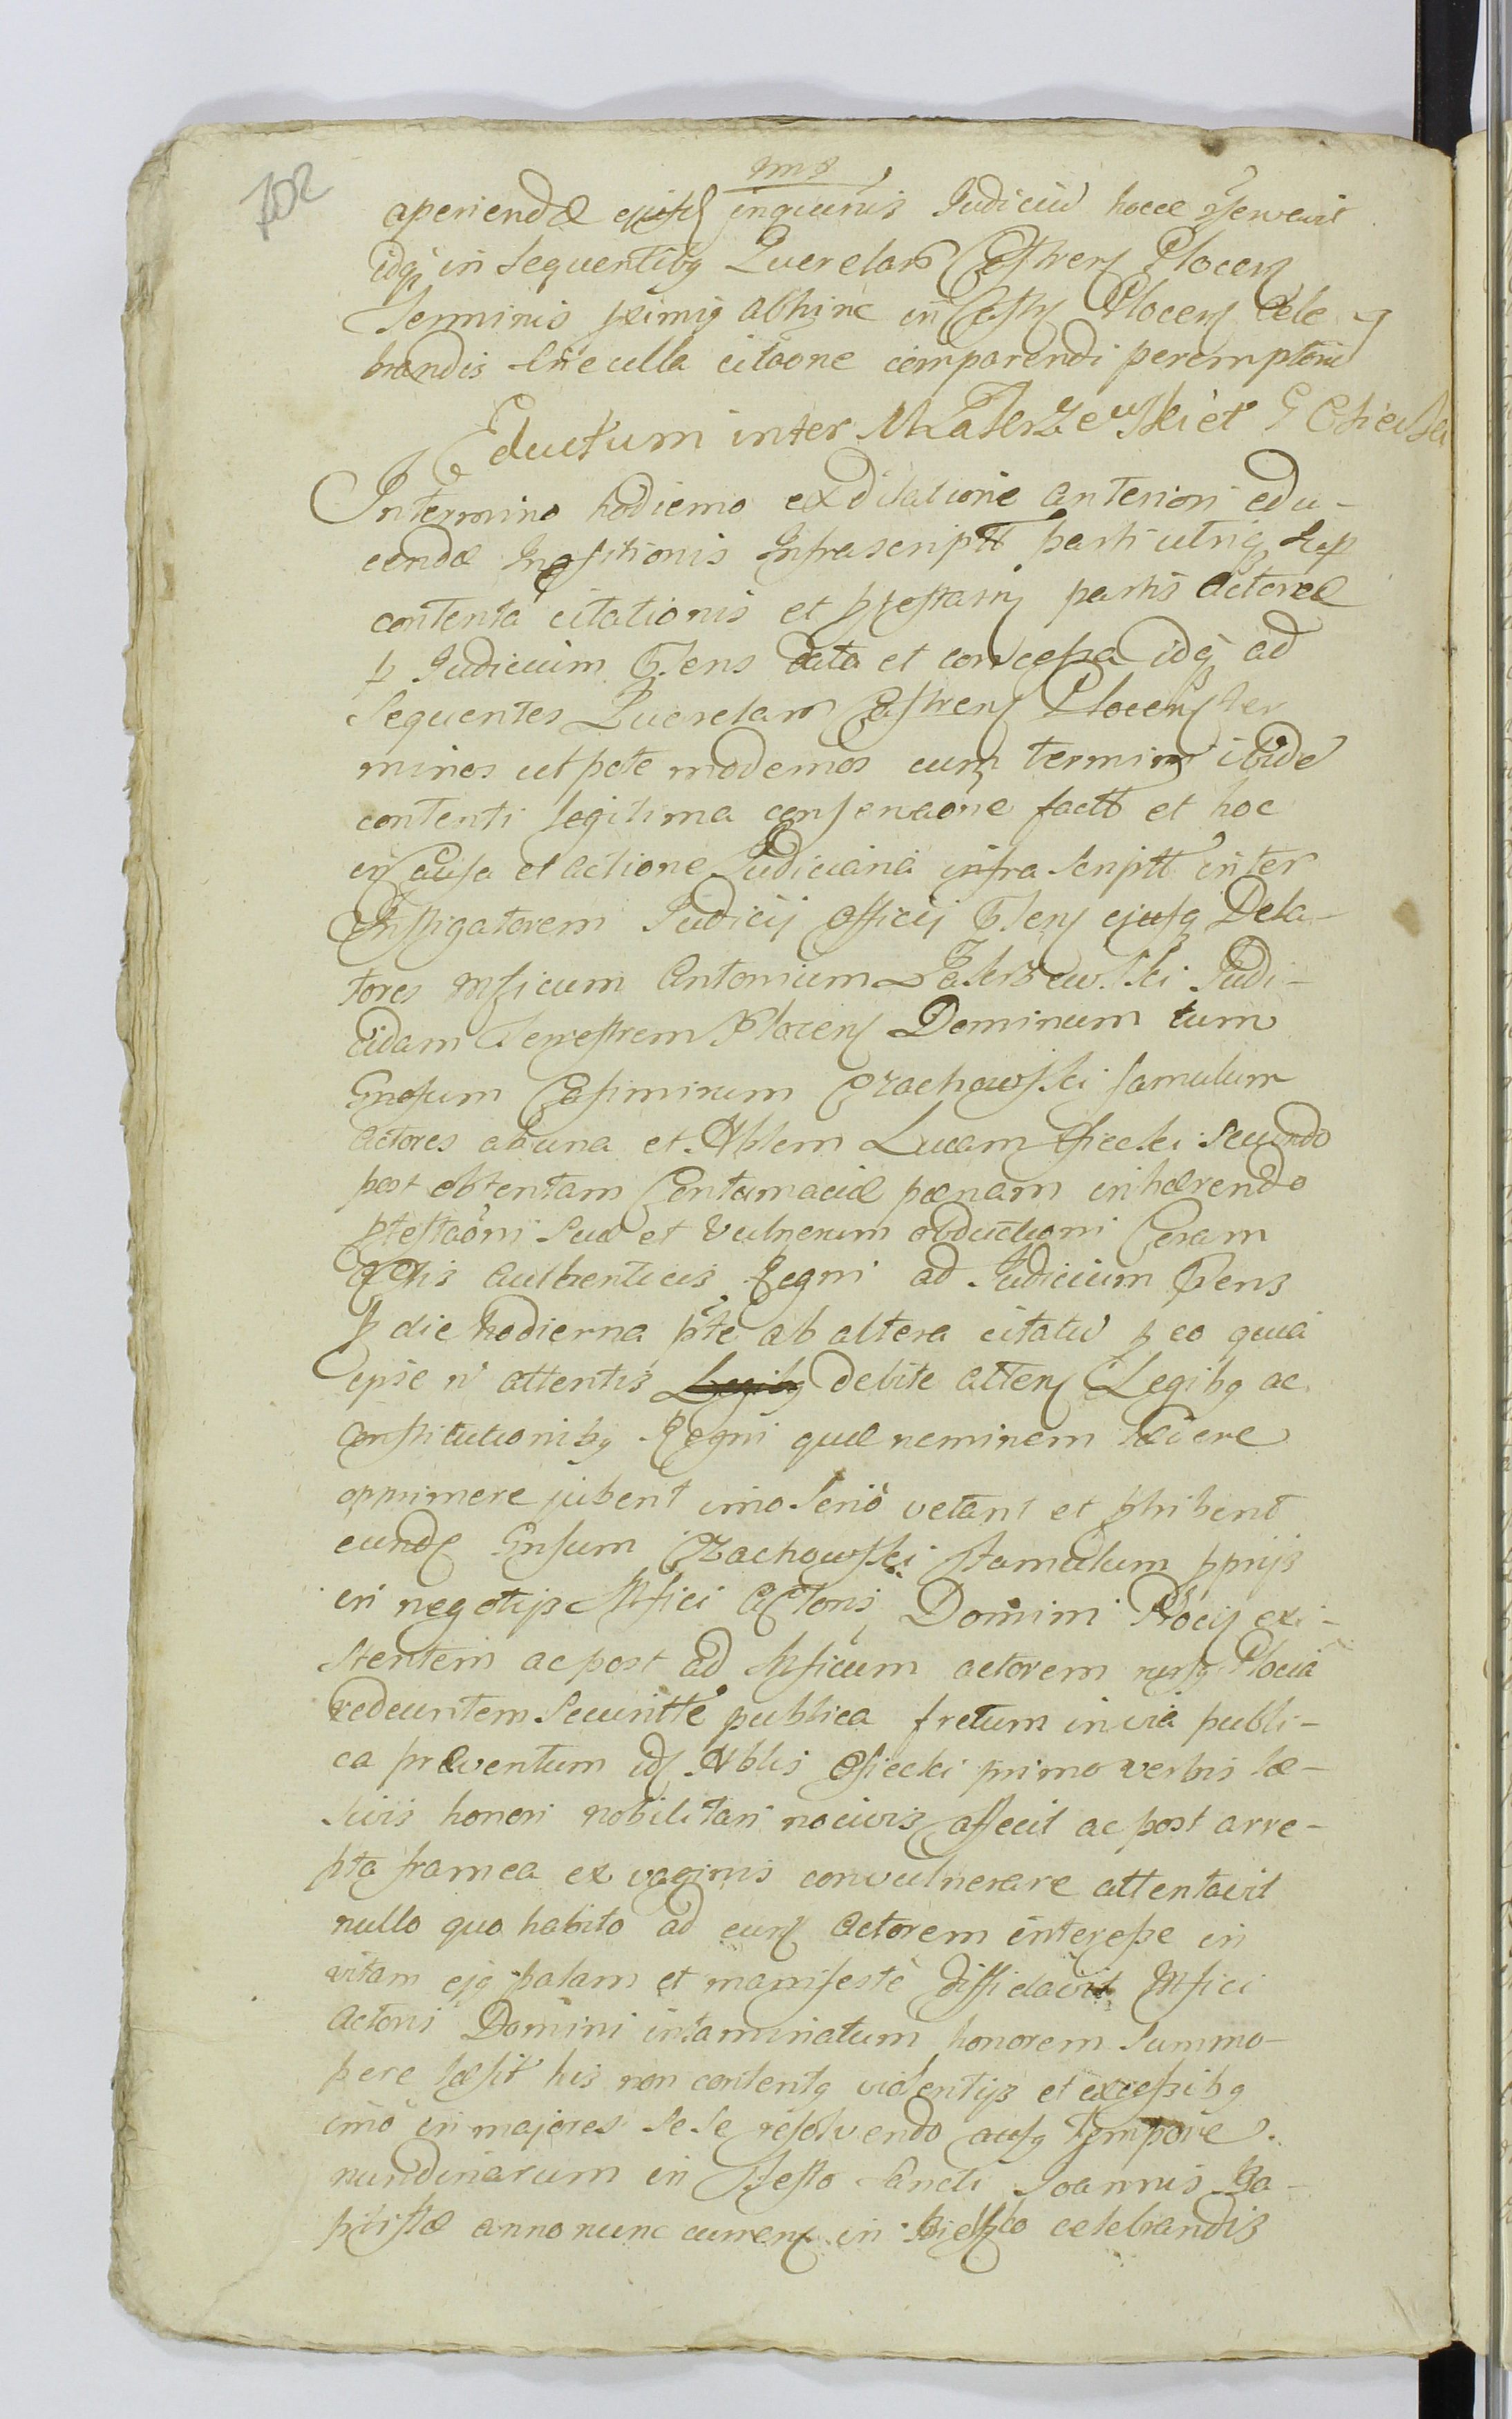 702
aperiendæ ejusd inquinis Judiciū hocce rserwavit
idq; in sequentibq Querelarō Castrens Plocens
Terminis pximis abhinc in Castro Plocens Cele
brandis sine ulla citaone comparendi peremptorie
Eductum inter M Zaterzewski et G Osiecki
In termino hodierno ex dilatione anteriori edu-
cendæ Inqsitionis Infrascriptt parti utriq; sup
contenta citationis et ptestaōn partis Actoreæ
p Judicium Psens data et concessa idq; ad
sequentes Querelarō Castrens Plocens ter
minos utpote modernos cum termini ibidē
contenti legitima conservaōne factō et hoc
in Causa et actione Judiciaria infra scriptt inter
Instigatorem Judicij officij Psens ejusq Dela-
tores Mficum Antonium Zaterzewski Judi-
cidam Terrestrem Plocens Dominum tum
Gnosum Casimirum Czachowski famulum
actores ab una et Nblem Lucam Osiecki secundo
post obtentam Contumaciæ pœnam inhærendo
ptestaōni suæ et vulnerum obductioni Coram
Actis authenticis Regni ad Judicium Psens
p die hodierna pte ab altera citatū p eo quia
ipse n attentis Legibq debite attens Legibq ac
Constitutionibq Regni quæ neminem lædere
opprimere jubent imo serio vetant et phibent
eundē Gnsum Czachowski famulum pprijs
in negotijs Mfici Actoris Domini Plocij exi-
stentem ac post ad Mficum actorem rursq Plocia
redeuntem securitte publica fretum in via publi-
ca præventum idē Nblis Osiecki primo verbis læ-
sivis honori nobilitari nocivis affecit ac post arre-
pta framea ex vaginis convulnerare attentavit
nullo quo habito ad eund actorem interesse in
vitam ejq palam et manifeste diffidavit Mfici
Actoris Domini intaminatum honorem summo-
pere læsit his non contentq violentijs et excessibq
imo in majores sese resolvendo ausq tempore
nundinarum in Festo Sancti Joannis Ba-
ptistæ anno nunc currens in celebrandis